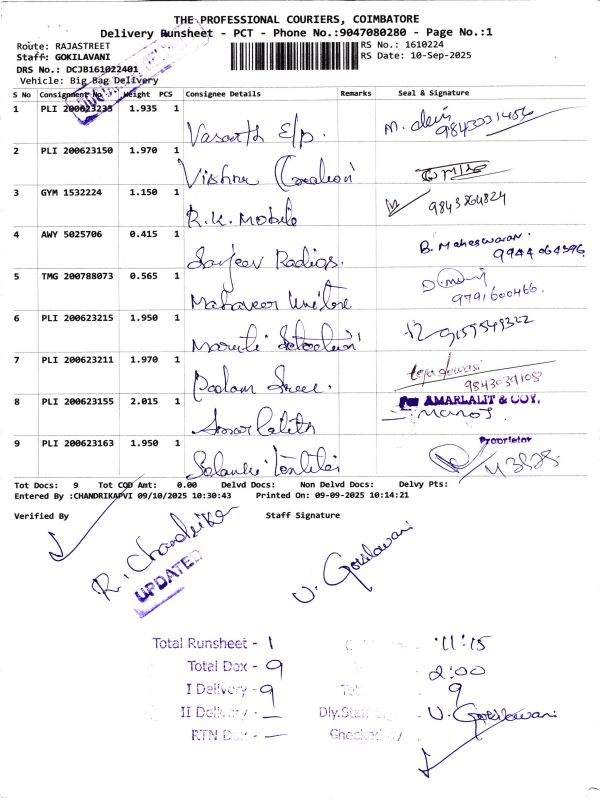 THE PROFESSIONAL COURIERS, COIMBATORE
Delivery Runsheet - PCT - Phone No.:9047080280 - Page No.:1
Route: RAJASTREET
RS No.: 1610224
Staff: GOKILAVANI
RS Date: 10-Sep-2025
DRS No.: DCJB161022401
Vehicle: Big Bag Delivery
S No Consignment No Weight PCS Consignee Details Remarks Seal & Signature
1 PLI 200623235 1.935 1 Vasanth E/p. 9843331456
2 PLI 200623150 1.970 1 Vishnu
3 GYM 1532224 1.150 1 R.K. Mobile 9843864824
4 AWY 5025706 0.415 1 Sanjeev Radios. B. Maheswaran. 9944064396
5 TMG 200788073 0.565 1 Mahaveer 9791600466.
6 PLI 200623215 1.950 1 Maruti 9159549322
7 PLI 200623211 1.970 1 Poolam 9843039108
8 PLI 200623155 2.015 1 Amar Lalith AMARLALIT & COY. Manoj
Proprietor
9 PLI 200623163 1.950 1 Solanki
Tot Docs: 9 Tot COD Amt: 0.00 Delvd Docs: Non Delvd Docs: Delvy Pts:
Entered By :CHANDRIKAPVI 09/10/2025 10:30:43 Printed On: 09-09-2025 10:14:21
Verified By Staff Signature
R. Chandrika
UPDATED
V. Gokilavani
Total Runsheet - 1 11:15
Total Dox - 9 2:00
I Delivery - 9 9
II Delivery - — Dly.Staff V. Gokilavani
RTN - — Checked By